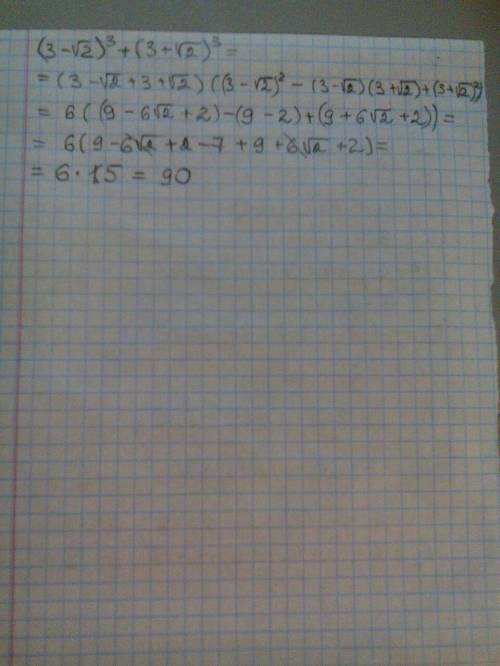 (3-√2)³+(3+√2)³=
=(3-√2+3+√2)((3-√2)²-(3-√2)(3+√2)+(3+√2)²)
=6((9-6√2+2)-(9-2)+(9+6√2+2))=
=6(9-6√2+2-7+9+6√2+2)=
=6·15=90